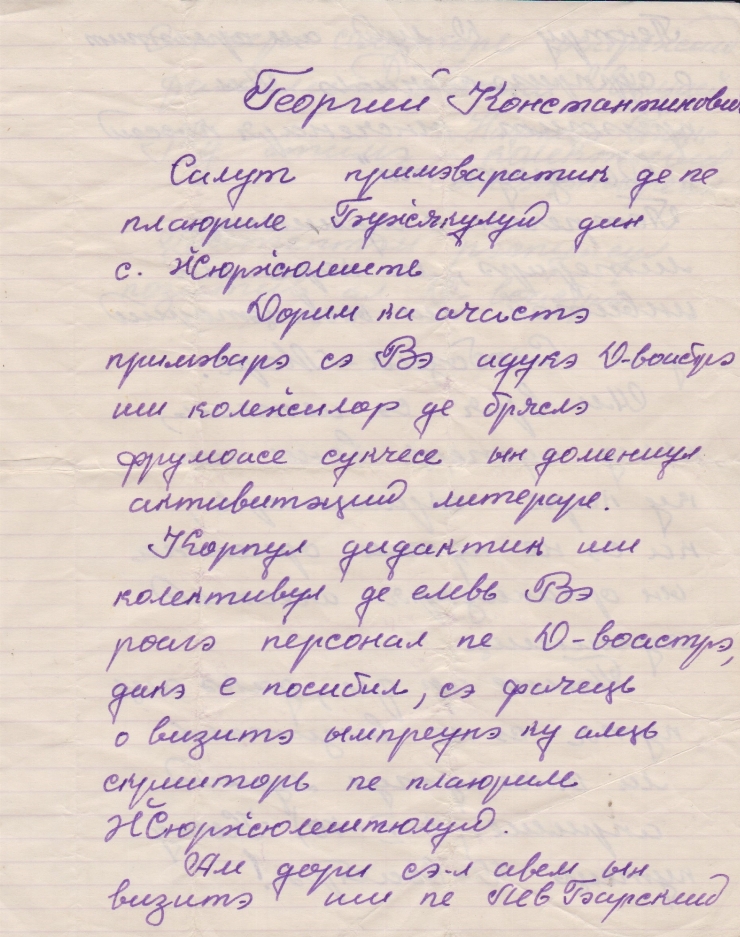 Георгий Константинович
Салут примэваратик де пе
плаюриле Бужякулуй дин
с. Жюржюлешть
Дорим ка ачастэ
примэварэ сэ Вэ адукэ D-воастрэ
ши колежилор де бряслэ
фрумоасе сукчесе ын домениул
активитэций литераре.
Корпул дидактик ши
колективул де елевь Вэ
роагэ персонал пе D-воастрэ,
дакэ е посибил, сэ фачець
о визитэ ымпреунэ ку алць
скрииторь пе плаюриле
Жюржюлештюлуй.
Ам дори сэ-л авем ын
визитэ ши пе Лев Бэрский